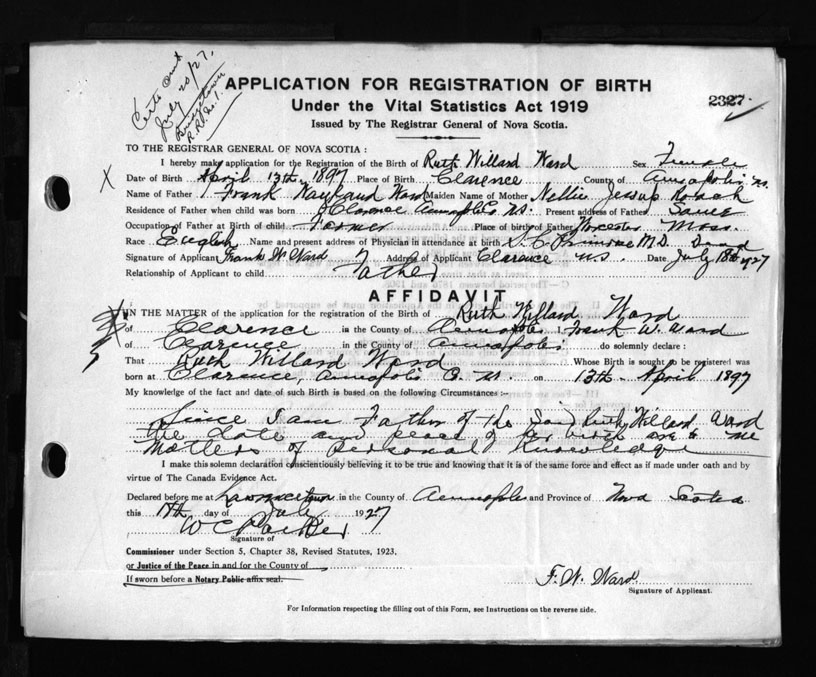 Certs Sent
July 20/27.
Bridgetown
R.R. No. 1.
APPLICATION FOR REGISTRATION OF BIRTH
2327
Under the Vital Statistics Act 1919
Issued by The Registrar General of Nova Scotia.
TO THE REGISTRAR GENERAL OF NOVA SCOTIA :
I hereby make application for the Registration of the Birth of Ruth Willard Ward Sex Female
X Date of Birth April 13th 1897 Place of Birth Clarence County of Annapolis N.S.
Name of Father Frank Ward Maiden Name of Mother Nellie Jessup Roach
Residence of Father when child was born Clarence Annapolis N.S. Present address of Father Same
Occupation of Father at Birth of child Farmer Place of birth of Father Worcester Mass.
Race English Name and present address of Physician in attendance at birth S. C. Primrose M.D. Dead
Signature of Applicant Frank W Ward Address of Applicant Clarence N.S. Date July 18th 1927
Relationship of Applicant to child Father
AFFIDAVIT
IN THE MATTER of the application for the registration of the Birth of Ruth Willard Ward
of Clarence in the County of Annapolis I, Frank W. Ward
of Clarence in the County of Annapolis do solemnly declare :
That Ruth Willard Ward Whose Birth is sought to be registered was
born at Clarence, Annapolis C. on 13th April 1897
My knowledge of the fact and date of such Birth is based on the following Circumstances :-
Since I am Father of the said Ruth Willard Ward
the date and place of her birth are to me
Matters of personal Knowledge
I make this solemn declaration conscientiously believing it to be true and knowing that it is of the same force and effect as if made under oath and by
virtue of The Canada Evidence Act.
Declared before me at Lawrencetown in the County of Annapolis and Province of Nova Scotia
this 18th day of July 1927
W C Parker
Signature of
Commissioner under Section 5, Chapter 38, Revised Statutes, 1923.
or Justice of the Peace in and for the County of
If sworn before a Notary Public affix seal.
F. W. Ward
Signature of Applicant.
For Information respecting the filling out of this Form, see Instructions on the reverse side.